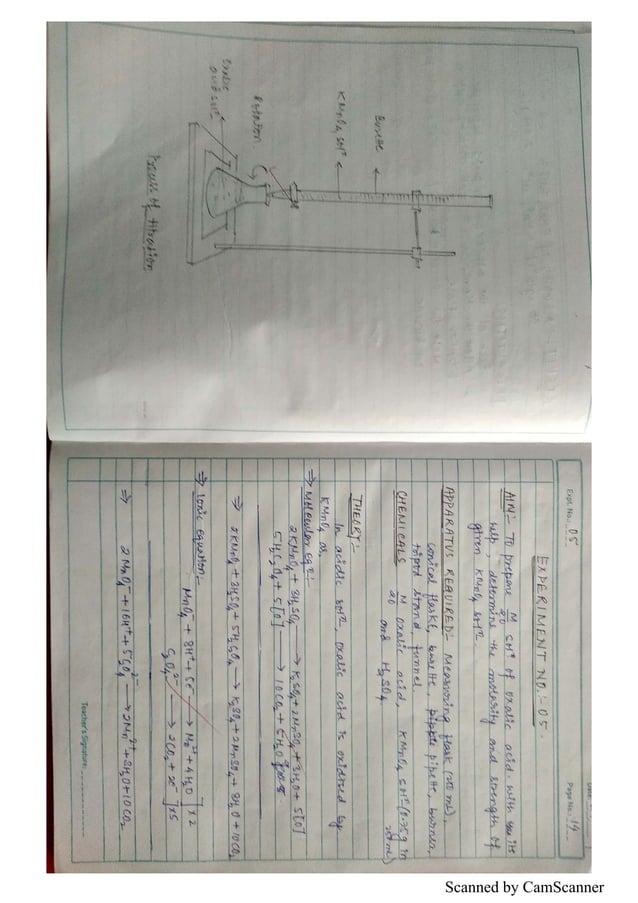 Burette
KMnO4 solⁿ
Rotation
Oxalic
acid solⁿ
Process of titration
Expt. No.:- 05
Page No.: 14
EXPERIMENT NO. :- 05.
AIM:- To prepare M/20 solⁿ of oxalic acid. with its
help, determine the molarity and strength of
given KMnO4 solⁿ.
APPARATUS REQUIRED:- Measuring flask (250 mL),
conical flask, burette, pipette, burner,
tripod stand, funnel.
CHEMICALS M/20 oxalic acid, KMnO4 solⁿ
and H2SO4
THEORY:-
In acidic solⁿ, oxalic acid is oxidised by
KMnO4 as,
⇒ Molecular eqⁿ:-
2KMnO4 + 3H2SO4 → K2SO4 + 2MnSO4 + 3H2O + 5[O]
5H2C2O4 + 5[O] → 10CO2 + 5H2O
⇒ 2KMnO4 + 3H2SO4 + 5H2C2O4 → K2SO4 + 2MnSO4 + 8H2O + 10CO2
⇒ Ionic Equation:-
MnO4⁻ + 8H⁺ + 5e⁻ → Mn²⁺ + 4H2O ] × 2
C2O4²⁻ → 2CO2 + 2e⁻ ] × 5
⇒ 2MnO4⁻ + 16H⁺ + 5C2O4²⁻ → 2Mn²⁺ + 8H2O + 10CO2
Teacher's Signature:
Scanned by CamScanner